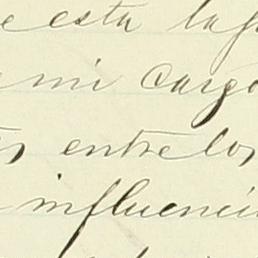 e esta la
mi cargo
entre los
influenci